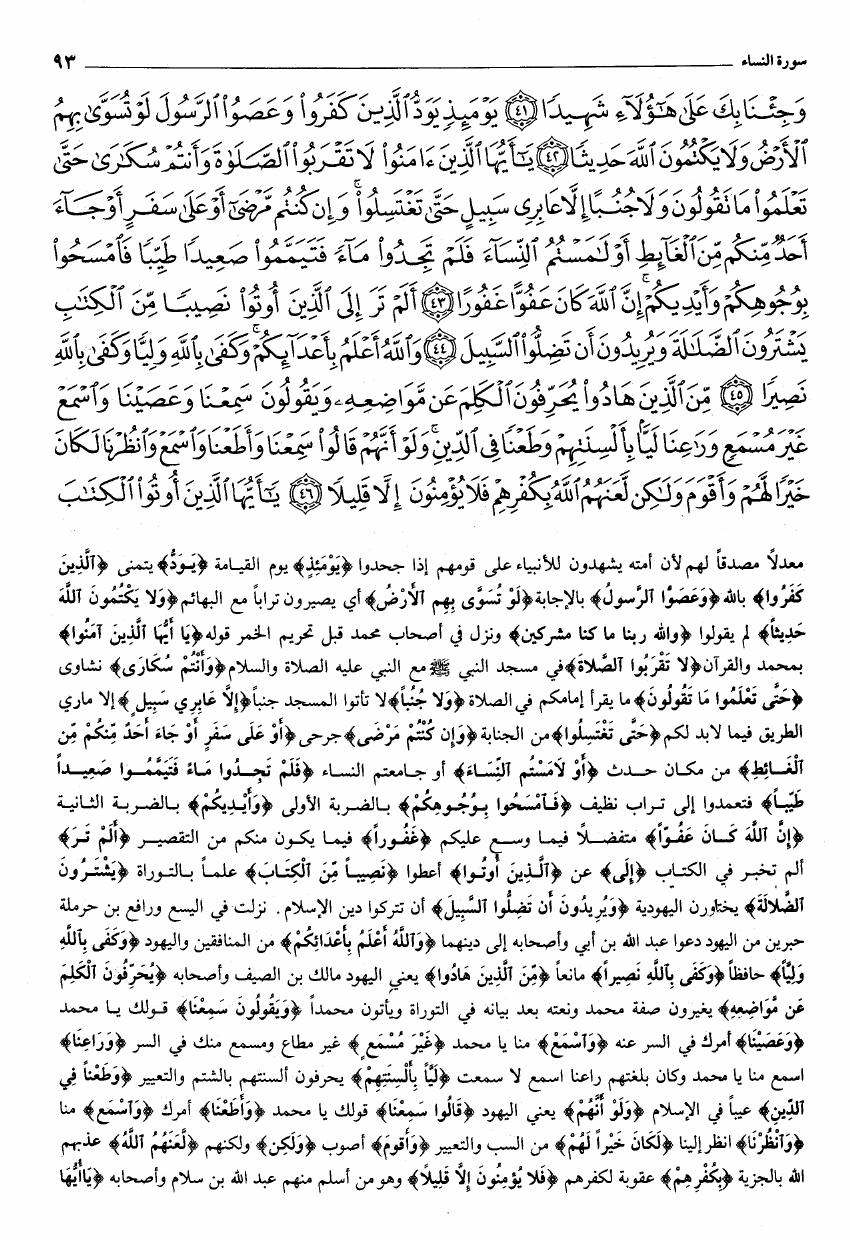 سورة النساء ٩٣
وَجِئْنَا بِكَ عَلَىٰ هَٰٓؤُلَآءِ شَهِيدًا ﴿٤١﴾ يَوْمَئِذٍ يَوَدُّ ٱلَّذِينَ كَفَرُوا۟ وَعَصَوُا۟ ٱلرَّسُولَ لَوْ تُسَوَّىٰ بِهِمُ
ٱلْأَرْضُ وَلَا يَكْتُمُونَ ٱللَّهَ حَدِيثًا ﴿٤٢﴾ يَٰٓأَيُّهَا ٱلَّذِينَ ءَامَنُوا۟ لَا تَقْرَبُوا۟ ٱلصَّلَوٰةَ وَأَنتُمْ سُكَٰرَىٰ حَتَّىٰ
تَعْلَمُوا۟ مَا تَقُولُونَ وَلَا جُنُبًا إِلَّا عَابِرِى سَبِيلٍ حَتَّىٰ تَغْتَسِلُوا۟ ۚ وَإِن كُنتُم مَّرْضَىٰٓ أَوْ عَلَىٰ سَفَرٍ أَوْ جَآءَ
أَحَدٌ مِّنكُم مِّنَ ٱلْغَآئِطِ أَوْ لَٰمَسْتُمُ ٱلنِّسَآءَ فَلَمْ تَجِدُوا۟ مَآءً فَتَيَمَّمُوا۟ صَعِيدًا طَيِّبًا فَٱمْسَحُوا۟
بِوُجُوهِكُمْ وَأَيْدِيكُمْ ۗ إِنَّ ٱللَّهَ كَانَ عَفُوًّا غَفُورًا ﴿٤٣﴾ أَلَمْ تَرَ إِلَى ٱلَّذِينَ أُوتُوا۟ نَصِيبًا مِّنَ ٱلْكِتَٰبِ
يَشْتَرُونَ ٱلضَّلَٰلَةَ وَيُرِيدُونَ أَن تَضِلُّوا۟ ٱلسَّبِيلَ ﴿٤٤﴾ وَٱللَّهُ أَعْلَمُ بِأَعْدَآئِكُمْ ۚ وَكَفَىٰ بِٱللَّهِ وَلِيًّا وَكَفَىٰ بِٱللَّهِ
نَصِيرًا ﴿٤٥﴾ مِّنَ ٱلَّذِينَ هَادُوا۟ يُحَرِّفُونَ ٱلْكَلِمَ عَن مَّوَاضِعِهِۦ وَيَقُولُونَ سَمِعْنَا وَعَصَيْنَا وَٱسْمَعْ
غَيْرَ مُسْمَعٍ وَرَٰعِنَا لَيًّۢا بِأَلْسِنَتِهِمْ وَطَعْنًا فِى ٱلدِّينِ ۚ وَلَوْ أَنَّهُمْ قَالُوا۟ سَمِعْنَا وَأَطَعْنَا وَٱسْمَعْ وَٱنظُرْنَا لَكَانَ
خَيْرًا لَّهُمْ وَأَقْوَمَ وَلَٰكِن لَّعَنَهُمُ ٱللَّهُ بِكُفْرِهِمْ فَلَا يُؤْمِنُونَ إِلَّا قَلِيلًا ﴿٤٦﴾ يَٰٓأَيُّهَا ٱلَّذِينَ أُوتُوا۟ ٱلْكِتَٰبَ
معدلاً مصدقاً لهم لأن أمته يشهدون للأنبياء على قومهم إذا جحدوا ﴿يَوْمَئِذٍ﴾ يوم القيامة ﴿يَوَدُّ﴾ يتمنى ﴿ٱلَّذِينَ
كَفَرُوا﴾ بالله ﴿وَعَصَوُا ٱلرَّسُولَ﴾ بالإجابة ﴿لَوْ تُسَوَّى بِهِم ٱلأَرْضُ﴾ أي يصيرون تراباً مع البهائم ﴿وَلا يَكْتُمُونَ ٱللَّهَ
حَدِيثاً﴾ لم يقولوا ﴿والله ربنا ما كنا مشركين﴾ ونزل في أصحاب محمد قبل تحريم الخمر قوله ﴿يَا أَيُّهَا ٱلَّذِينَ آمَنُوا﴾
بمحمد والقرآن ﴿لا تَقْرَبُوا ٱلصَّلاةَ﴾ في مسجد النبي ﷺ مع النبي عليه الصلاة والسلام ﴿وَأَنْتُمْ سُكَارَى﴾ نشاوى
﴿حَتَّى تَعْلَمُوا مَا تَقُولُونَ﴾ ما يقرأ إمامكم في الصلاة ﴿وَلا جُنُباً﴾ لا تأتوا المسجد جنباً ﴿إلَّا عَابِرِي سَبِيلٍ﴾ إلا ماري
الطريق فيما لابد لكم ﴿حَتَّى تَغْتَسِلُوا﴾ من الجنابة ﴿وَإِن كُنْتُمْ مَرْضَى﴾ جرحى ﴿أَوْ عَلَى سَفَرٍ أَوْ جَاءَ أَحَدٌ مِّنكُمْ مِّن
ٱلْغَائِطِ﴾ من مكان حدث ﴿أَوْ لَامَسْتُم ٱلنِّسَاءَ﴾ أو جامعتم النساء ﴿فَلَمْ تَجِدُوا مَاءً فَتَيَمَّمُوا صَعِيداً
طَيِّباً﴾ فتعمدوا إلى تراب نظيف ﴿فَٱمْسَحُوا بِوُجُوهِكُمْ﴾ بالضربة الأولى ﴿وَأَيْدِيكُمْ﴾ بالضربة الثانية
﴿إِنَّ ٱللَّهَ كَانَ عَفُوّاً﴾ متفضلاً فيما وسع عليكم ﴿غَفُوراً﴾ فيما يكون منكم من التقصير ﴿أَلَمْ تَرَ﴾
ألم تخبر في الكتاب ﴿إِلَى﴾ عن ﴿ٱلَّذِينَ أُوتُوا﴾ أعطوا ﴿نَصِيباً مِّنَ ٱلْكِتَابِ﴾ علماً بالتوراة ﴿يَشْتَرُونَ
ٱلضَّلالَةَ﴾ يختارون اليهودية ﴿وَيُرِيدُونَ أَن تَضِلُّوا ٱلسَّبِيلَ﴾ أن تتركوا دين الإسلام. نزلت في اليسع ورافع بن حرملة
حبرين من اليهود دعوا عبد الله بن أبي وأصحابه إلى دينهما ﴿وَٱللَّهُ أَعْلَمُ بِأَعْدَائِكُمْ﴾ من المنافقين واليهود ﴿وَكَفَى بِٱللَّهِ
وَلِيّاً﴾ حافظاً ﴿وَكَفَى بِٱللَّهِ نَصِيراً﴾ مانعاً ﴿مِّنَ ٱلَّذِينَ هَادُوا﴾ يعني اليهود مالك بن الصيف وأصحابه ﴿يُحَرِّفُونَ ٱلْكَلِمَ
عَن مَّوَاضِعِهِ﴾ يغيرون صفة محمد ونعته بعد بيانه في التوراة ويأتون محمداً ﴿وَيَقُولُونَ سَمِعْنَا﴾ قولك يا محمد
﴿وَعَصَيْنَا﴾ أمرك في السر عنه ﴿وَٱسْمَعْ﴾ منا يا محمد ﴿غَيْرَ مُسْمَعٍ﴾ غير مطاع ومسمع منك في السر ﴿وَرَاعِنَا﴾
اسمع منا يا محمد وكان بلغتهم راعنا اسمع لا سمعت ﴿لَيّاً بِأَلْسِنَتِهِمْ﴾ يحرفون ألسنتهم بالشتم والتعيير ﴿وَطَعْناً فِي
ٱلدِّينِ﴾ عيباً في الإسلام ﴿وَلَوْ أَنَّهُمْ﴾ يعني اليهود ﴿قَالُوا سَمِعْنَا﴾ قولك يا محمد ﴿وَأَطَعْنَا﴾ أمرك ﴿وَٱسْمَع﴾ منا
﴿وَٱنْظُرْنَا﴾ انظر إلينا ﴿لَكَانَ خَيْراً لَهُمْ﴾ من السب والتعيير ﴿وَأَقْوَمَ﴾ أصوب ﴿وَلَكِن﴾ ولكنهم ﴿لَّعَنَهُمُ ٱللَّهُ﴾ عذبهم
الله بالجزية ﴿بِكُفْرِهِمْ﴾ عقوبة لكفرهم ﴿فَلا يُؤْمِنُونَ إِلَّا قَلِيلاً﴾ وهو من أسلم منهم عبد الله بن سلام وأصحابه ﴿يَاأَيُّهَا